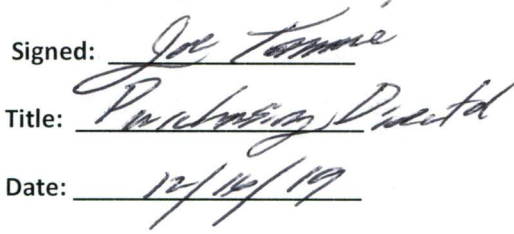 Signed: Joe
Title: Purchasing Director
Date: 12/16/19